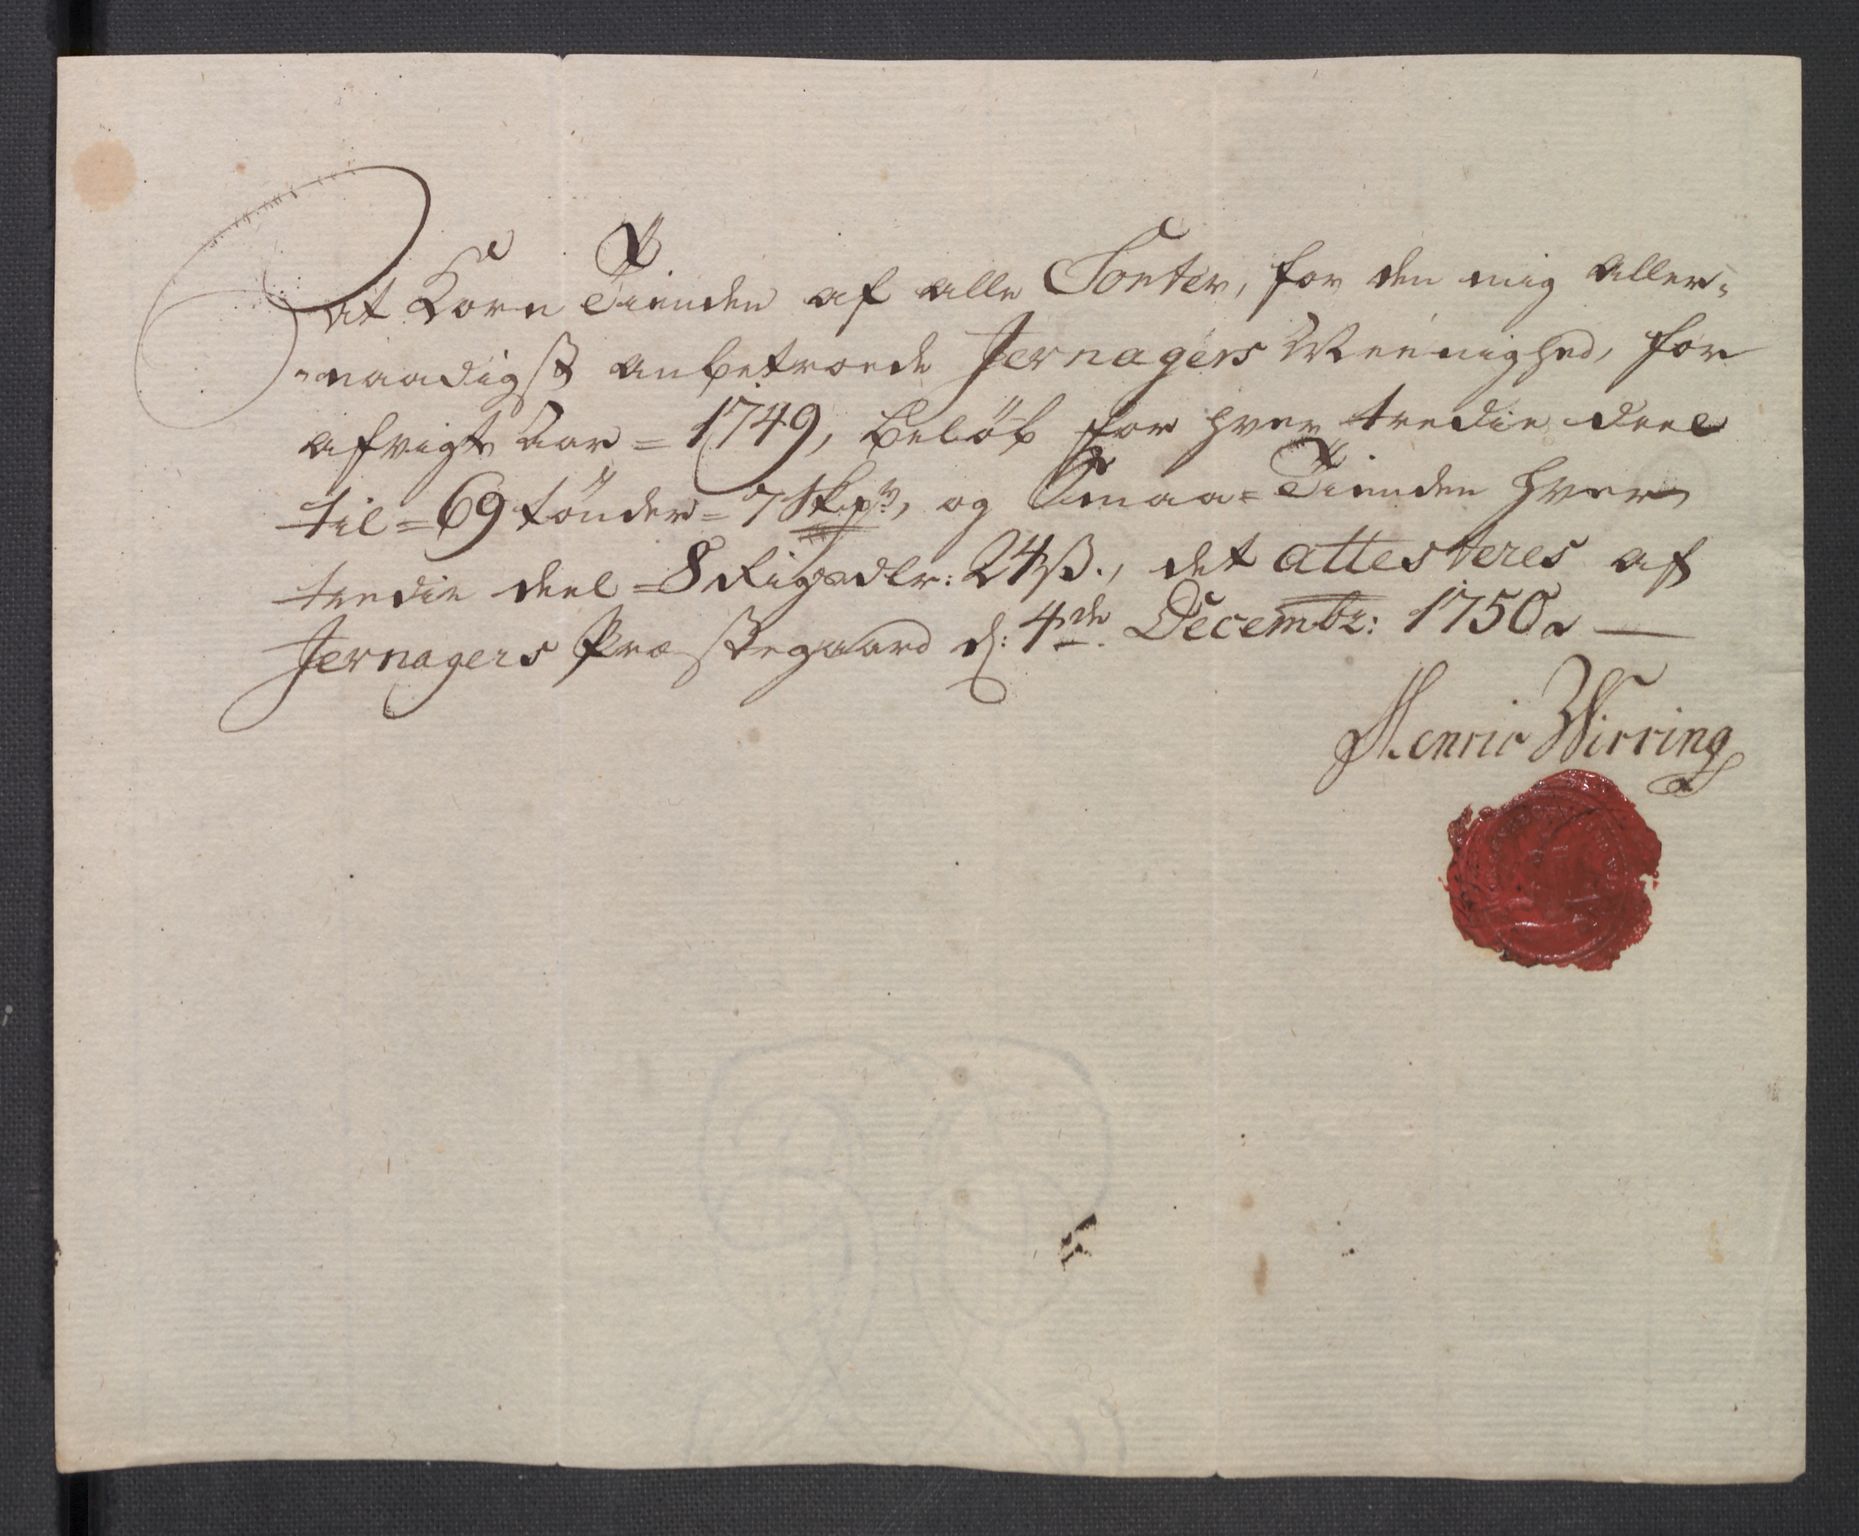 At Korn Tienden af alle Sorter, for den mig aller-
naadigst anbetroede Jernagers Meenighed, for
afvigt Aar = 1749, beløb for hver tredie deel
til = 69 tönder = 7 Skpr, og Smaa = Tienden hver
tredie deel = 8 Rigsdlr: 24 ß., det attesteres af
Jernagers Præstegaard d: 4de Decembr: 1750.
Henric Wirring